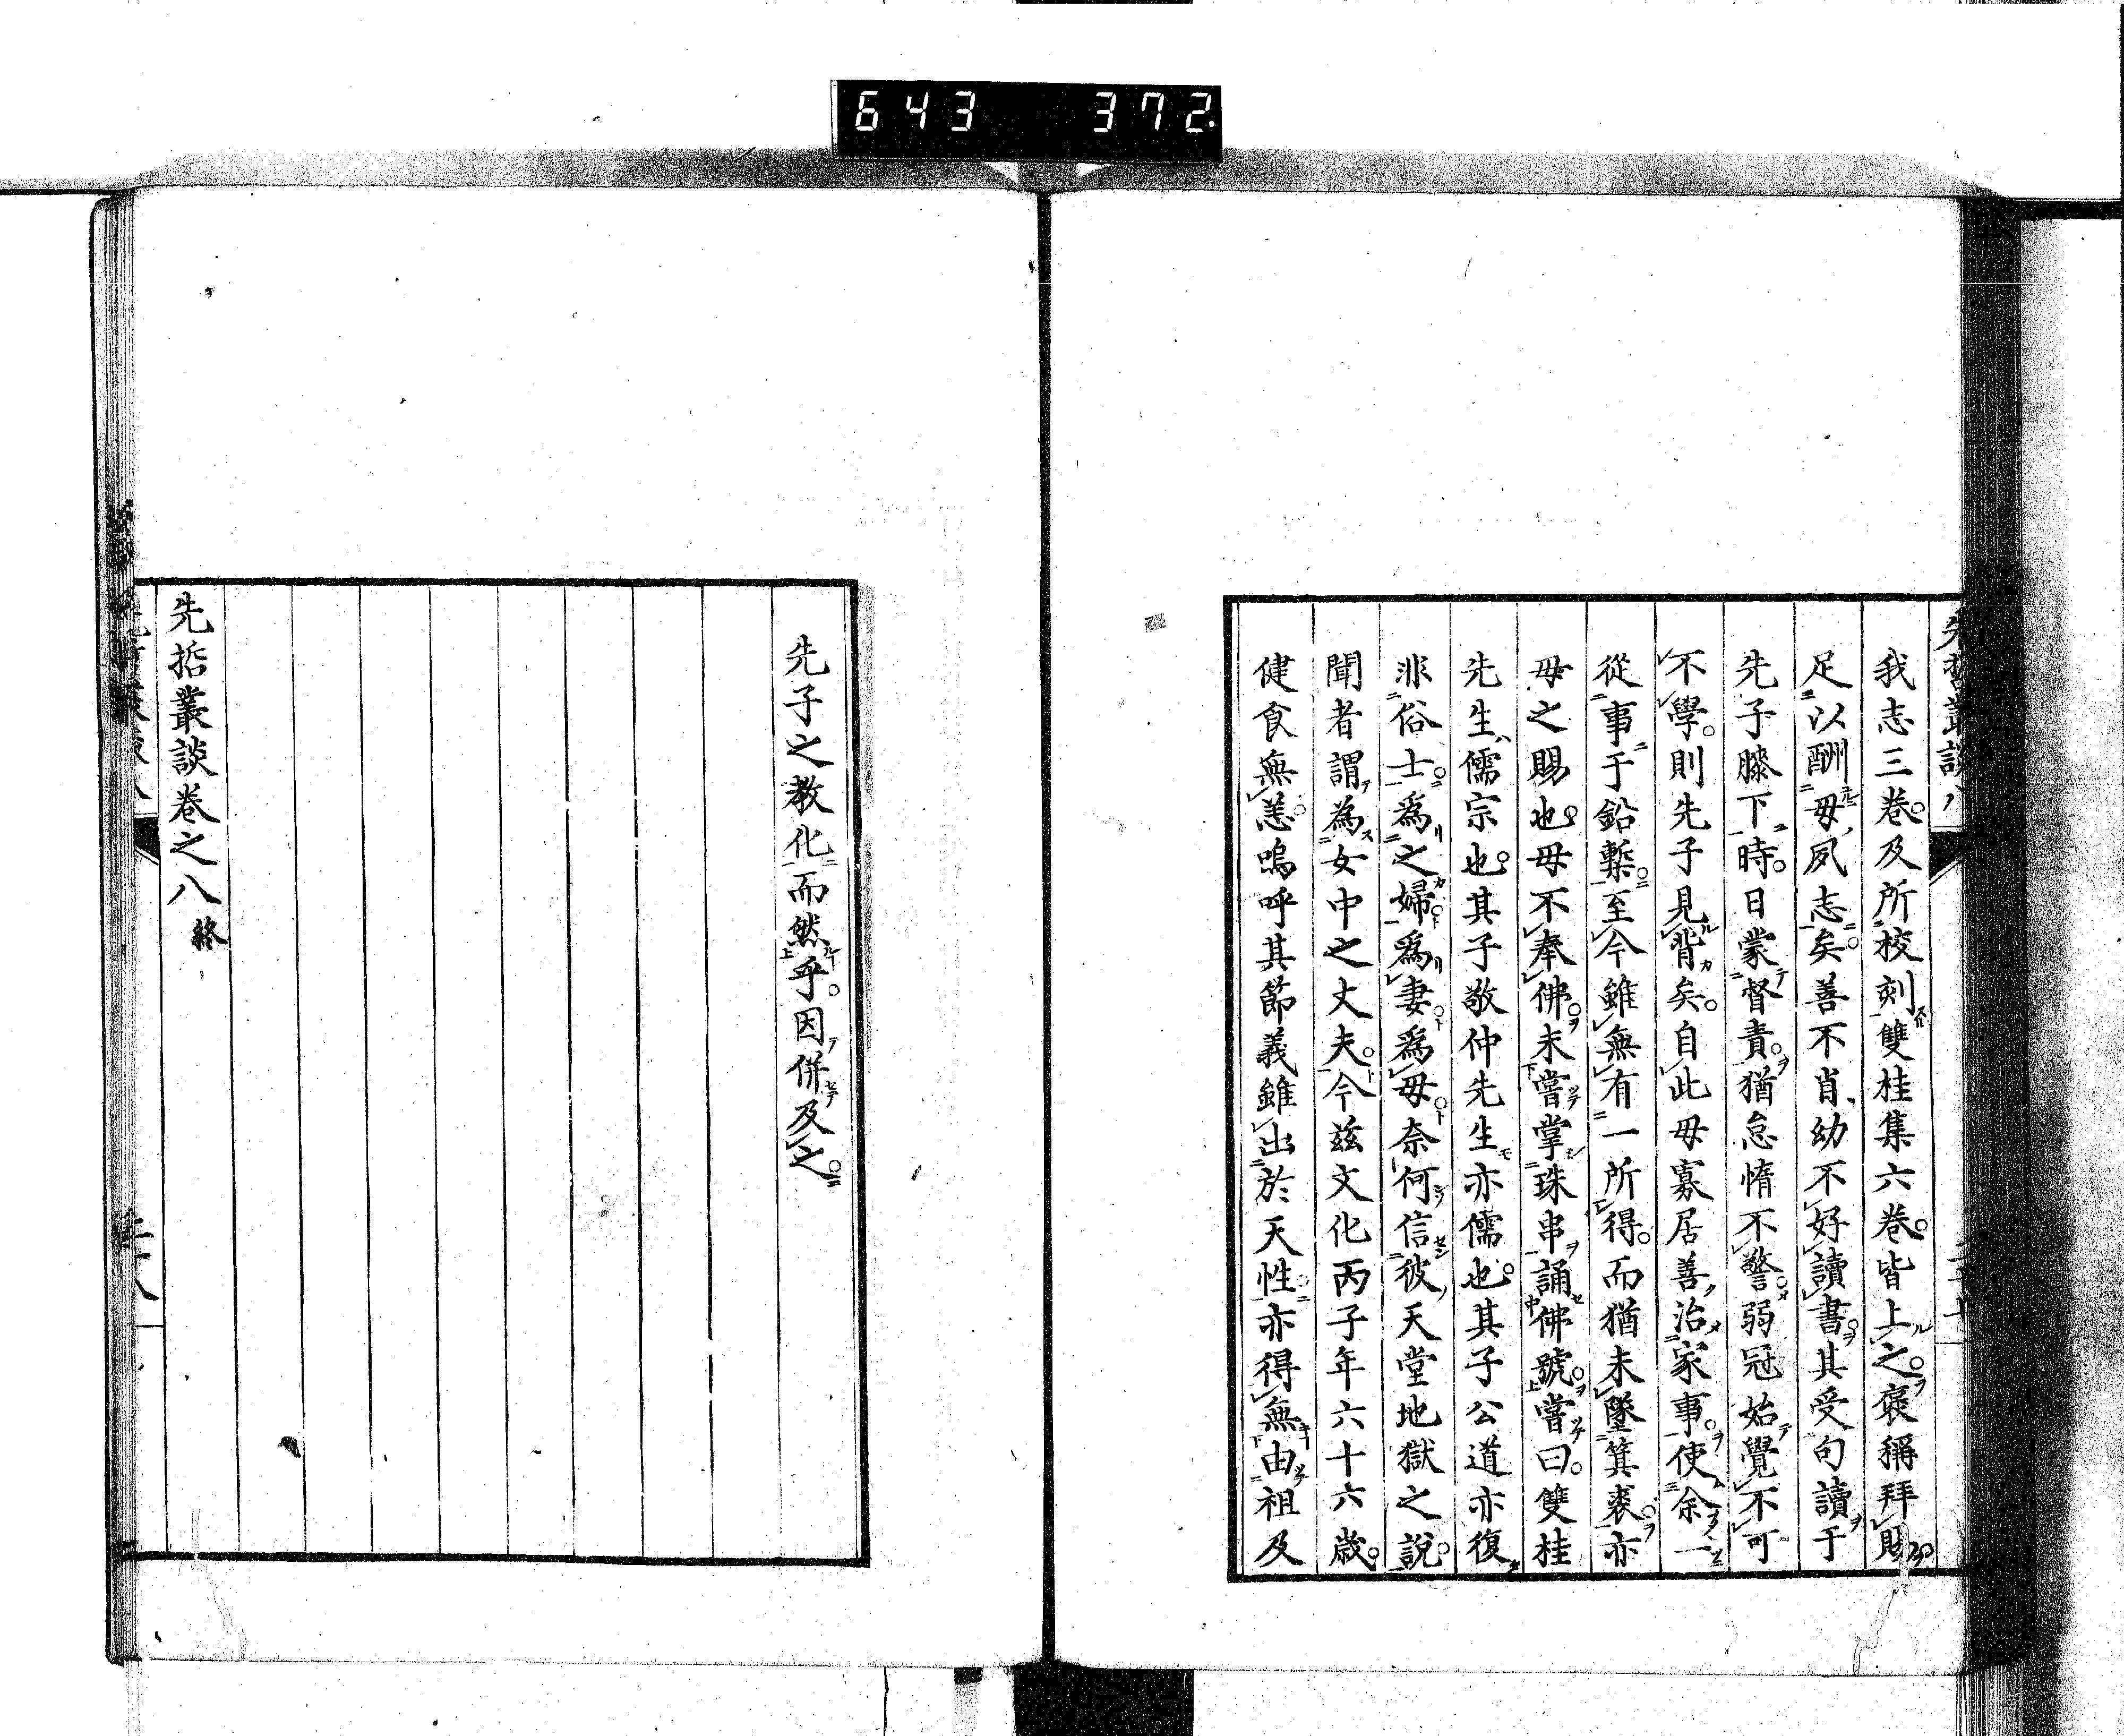 643 372
先哲叢談八
我志三卷。及所校刻雙桂集六卷。皆上之。褒稱拜賜。
足以酬母夙志矣。善不肖幼不好讀書。其受句讀于
先子膝下時。日蒙督責。猶怠惰不警。弱冠始覺不可
不學。則先子見背矣。自此母寡居善治家事。使余一
從事于鉛槧。至今雖無有一所得。而猶未墜箕裘。亦
母之賜也。母不奉佛。未嘗掌珠串誦佛號。嘗曰。雙桂
先生儒宗也。其子敬仲先生亦儒也。其子公道亦復
非俗士。爲之婦。爲妻。爲母。奈何信彼天堂地獄之說。
聞者謂爲女中之丈夫。今茲文化丙子年六十六歲。
健食無恙。嗚呼其節義雖出於天性。亦得無由祖及
先子之教化而然乎。因併及之。
先哲叢談卷之八 終